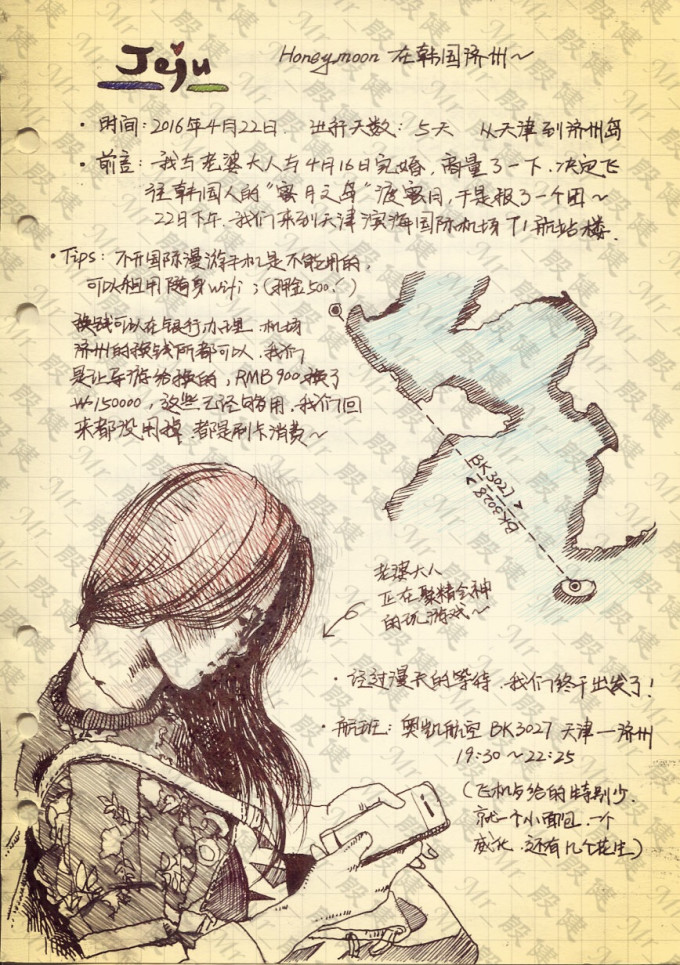 Jeju
Honeymoon 在韩国济州~
· 时间：2016年4月22日. 进行天数：5天 从天津到济州岛
· 前言：我与老婆大人与4月16日完婚，商量了一下，决定飞
往韩国人的“蜜月之岛”渡蜜月，于是报了一个团~
22日下午，我们来到天津滨海国际机场 T1航站楼.
· Tips：不开国际漫游手机是不能用的，
可以租用随身wifi；(押金500！)
换钱可以在银行办理 机场
济州的换钱所都可以，我们
是让导游给换的，RMB 900换了
₩150000，这些已经够用.我们回
来都没用掉 都是刷卡消费~
BK3027
BK3028
老婆大人
正在聚精会神
的玩游戏~
· 经过漫长的等待，我们终于出发了！
· 航班：奥凯航空 BK3027 天津—济州
19:30~22:25
(飞机上给的特别少.
就一个小面包.一个
威化.还有几个花生)
Mr_殷健